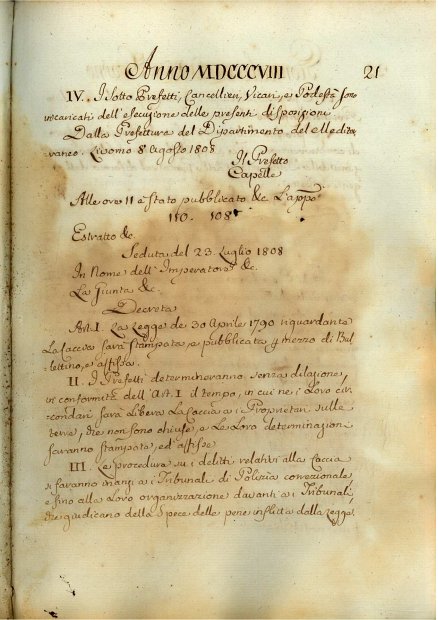 Anno MDCCCVIII
21
IV. I Sotto Prefetti, Cancellieri, Vicari, e Podestà sono
incaricati dell'esecuzione delle presenti disposizioni
Dalla Prefettura del Dipartimento del Medite
raneo. Livorno 8 Agosto 1808
Il Prefetto
Capelle
Alle ore 11 è stato pubblicato &c.
110. 108
Estratto &c.
Seduta del 23. Luglio 1808
In Nome dell'Imperatore &c.
La Giunta &c.
Decreta
Art. I. La Legge de 30 Aprile 1790 riguardante
La Caccia sarà stampata, e pubblicata p mezzo di Bul-
lettino, e affissa.
II. I Prefetti determineranno senza dilazione,
in conformità dell'Art. I il tempo, in cui ne i Loro cir-
condari sarà Libera La Caccia a i Proprietari sulle
terre, che non sono chiuse, e Le Loro determinazioni
saranno stampate, ed affisse
III. Le procedura su i delitti relativi alla Caccia
si faranno inanzi a i Tribunali di Polizia correzionale,
e fino alla Loro organizzazione davanti a i Tribunali,
che giudicano della Spece delle pene inflitta dalla Legge.